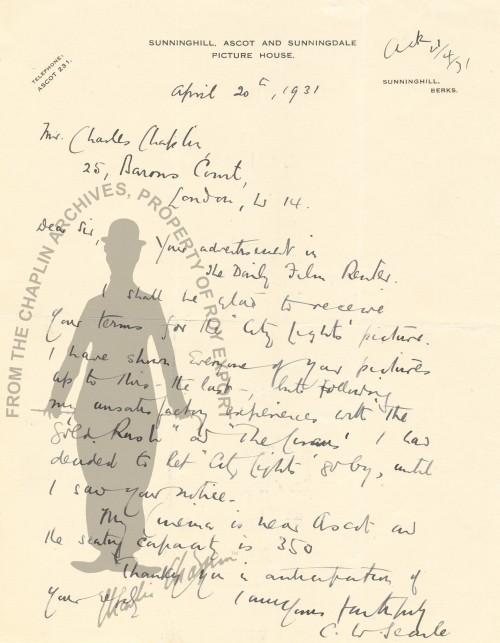 SUNNINGHILL, ASCOT AND SUNNINGDALE
PICTURE HOUSE.
TELEPHONE:
ASCOT 231.
SUNNINGHILL,
BERKS.
April 20th, 1931
Mr. Charles Chaplin,
25, Barons Court,
London, W 14.
Dear Sir,
Your advertisement in
The Daily Film Renter.
I shall be glad to receive
your terms for the "City Lights" picture.
I have shown everyone of your pictures
up to this - the last -, but following
my unsatisfactory experiences with the
"Gold Rush" and "The Circus" I had
decided to let "City Lights" go by, until
I saw your notice.
My Cinema is near Ascot and
the seating capacity is 350
Thanking you in anticipation of
your reply
I am yours faithfully
C. W. Searle
FROM THE CHAPLIN ARCHIVES, PROPERTY OF ROY EXPORT
Charlie Chaplin